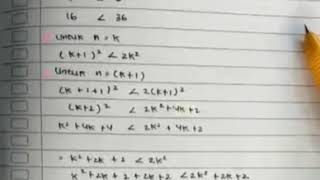 16 < 36
untuk n = k
(k+1)² < 2k²
untuk n = (k+1)
(k+1+1)² < 2(k+1)²
(k+2)² < 2k²+4k+2
k²+4k+4 < 2k²+4k+2
= k²+2k+1 < 2k²
k²+2k+1+2k+2 < 2k²+2k+2